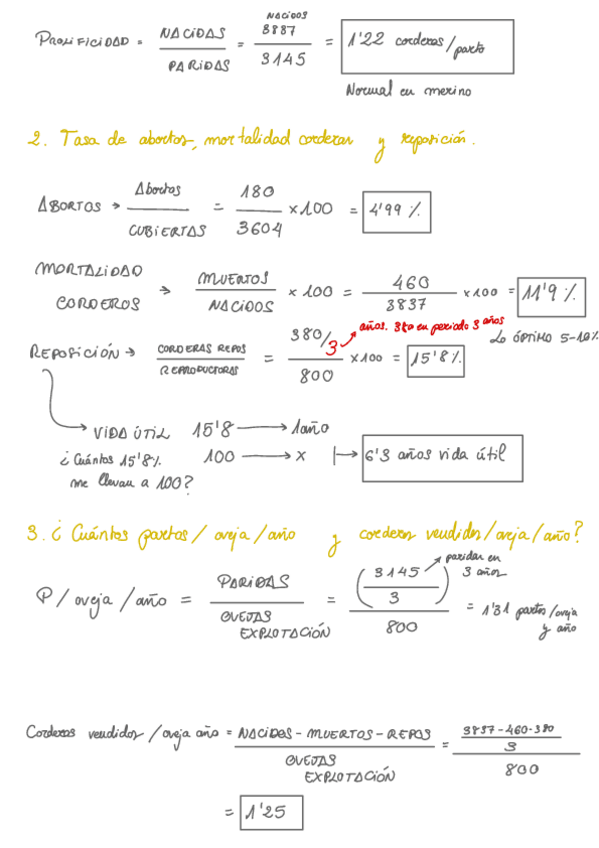 PROLIFICIDAD = NACIDAS / PARIDAS = NACIDOS 3837 / 3145 = 1'22 corderos/parto
Normal en merino
2. Tasa de abortos, mortalidad corderos y reposición.
ABORTOS → Abortos / CUBIERTAS = 180 / 3604 × 100 = 4'99 %
MORTALIDAD CORDEROS → MUERTOS / NACIDOS × 100 = 460 / 3837 × 100 = 11'9 %
Lo ÓPTIMO 5-10%
REPOSICIÓN → CORDERAS REPOS / REPRODUCTORAS = 380/3 / 800 × 100 = 15'8%
años. 380 en periodo 3 años
→ VIDA ÚTIL 15'8 → 1 año
¿Cuántos 15'8% me llevan a 100? 100 → x |→ 6'3 años vida útil
3. ¿Cuántos partos/oveja/año y corderos vendidos/oveja/año?
P/oveja/año = PARIDAS / OVEJAS EXPLOTACIÓN = (3145 / 3) / 800 = 1'31 partos/oveja y año
paridas en 3 años
Corderos vendidos/oveja año = NACIDOS - MUERTOS - REPOS / OVEJAS EXPLOTACIÓN = 3837-460-380 / 3 / 800
= 1'25